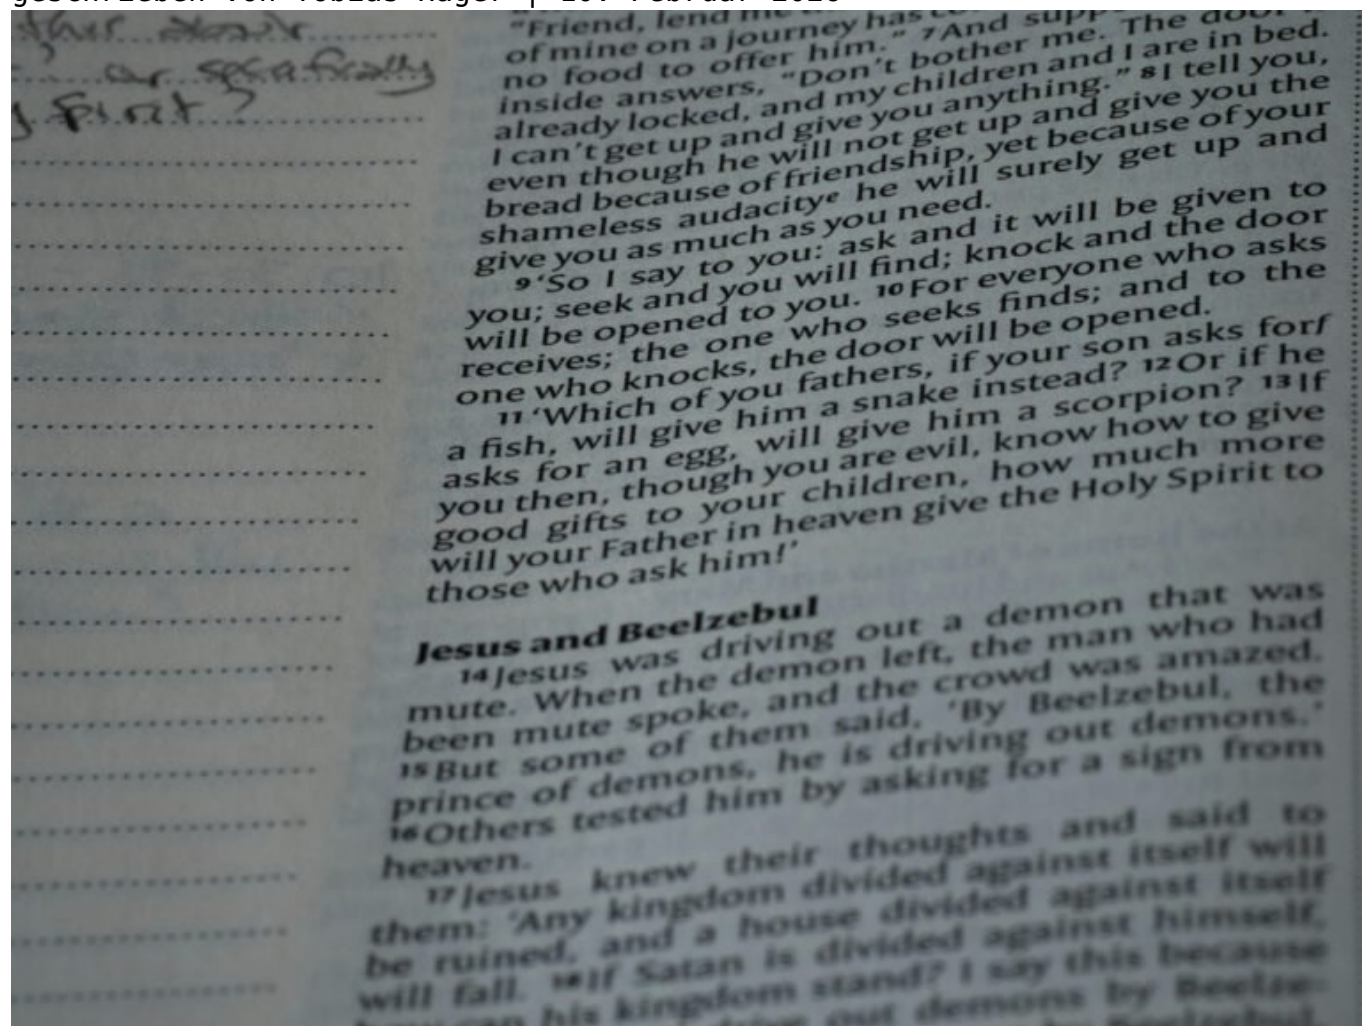 geschrieben von Tobias Hager | 10. Februar 2020
or specifically
Spirit?
"Friend, lend me
of mine on a journey has
no food to offer him." 7And supp
inside answers, "Don't bother me. The door
already locked, and my children and I are in bed.
I can't get up and give you anything." 8I tell you,
even though he will not get up and give you the
bread because of friendship, yet because of your
shameless audacitye he will surely get up and
give you as much as you need.
9'So I say to you: ask and it will be given to
you; seek and you will find; knock and the door
will be opened to you. 10For everyone who asks
receives; the one who seeks finds; and to the
one who knocks, the door will be opened.
11'Which of you fathers, if your son asks forf
a fish, will give him a snake instead? 12Or if he
asks for an egg, will give him a scorpion? 13If
you then, though you are evil, know how to give
good gifts to your children, how much more
will your Father in heaven give the Holy Spirit to
those who ask him!'
Jesus and Beelzebul
14Jesus was driving out a demon that was
mute. When the demon left, the man who had
been mute spoke, and the crowd was amazed.
15But some of them said, 'By Beelzebul, the
prince of demons, he is driving out demons.'
16Others tested him by asking for a sign from
heaven.
17Jesus knew their thoughts and said to
them: 'Any kingdom divided against itself will
be ruined, and a house divided against itself
will fall. 18If Satan is divided against himself,
how can his kingdom stand? I say this because
drive out demons by Beelze-